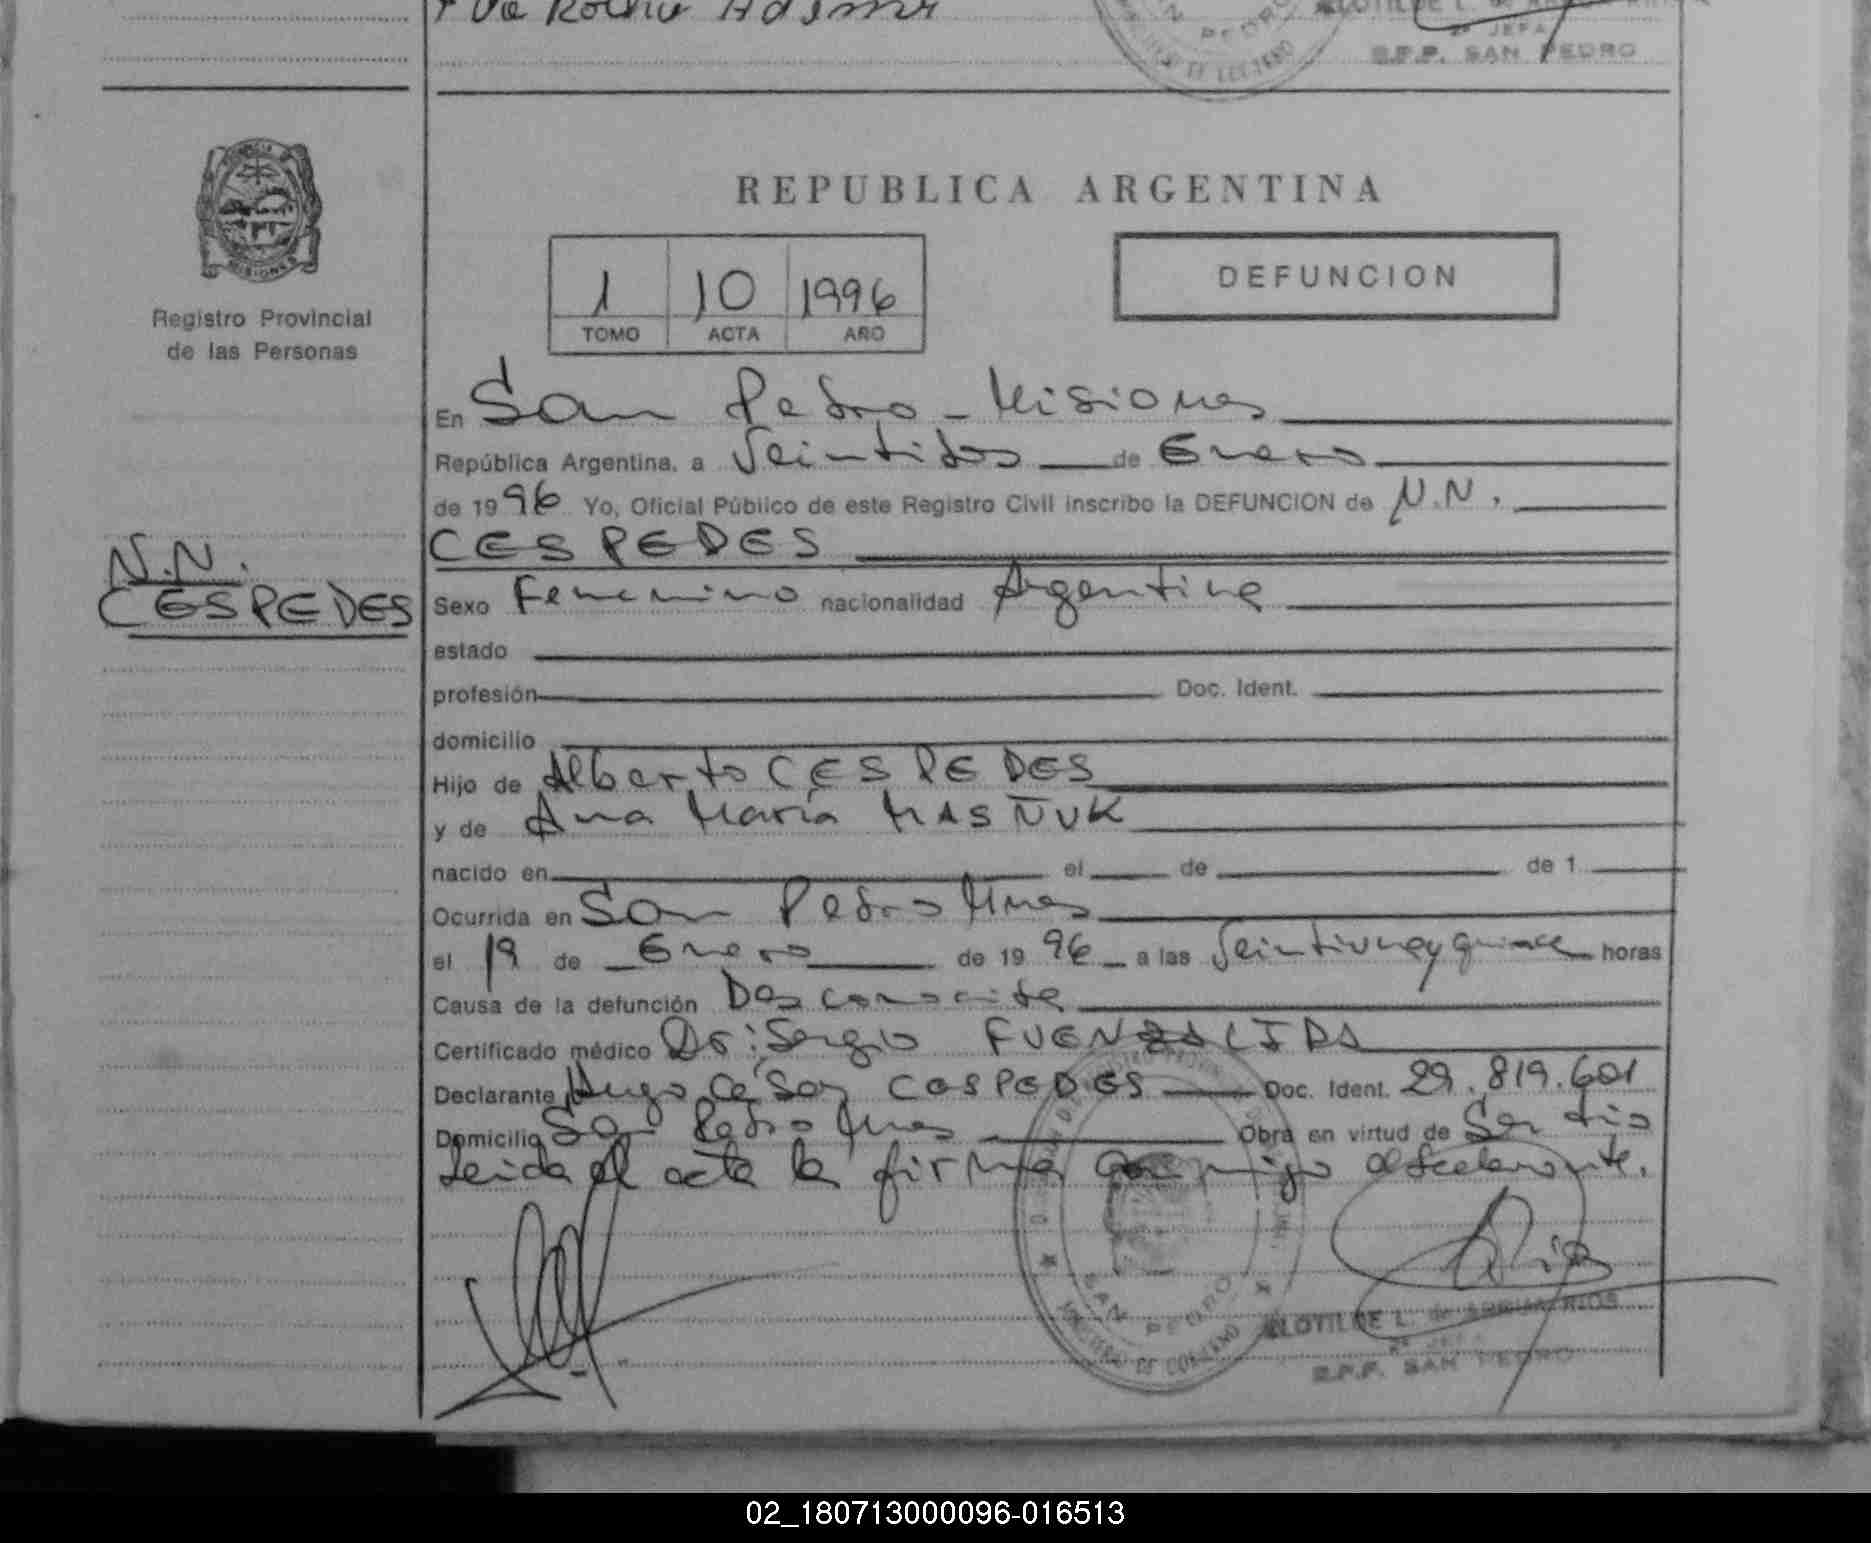 PEDRO
2ª JEFA
R.P.P. SAN PEDRO
PROVINCIA DE
MISIONES
Registro Provincial
de las Personas
REPUBLICA ARGENTINA
1 10 1996
TOMO ACTA AÑO
DEFUNCION
En San Pedro - Misiones
República Argentina, a Veintidos de Enero
de 1996 Yo, Oficial Público de este Registro Civil inscribo la DEFUNCION de N.N.
CESPEDES
N.N.
CESPEDES
Sexo Femenino nacionalidad Argentina
estado
profesión Doc. Ident.
domicilio
Hijo de Alberto CESPEDES
y de Ana María MASÑUK
nacido en el de de 1
Ocurrida en San Pedro Mnes
el 19 de Enero de 1996 a las Veintiuna y quince horas
Causa de la defunción Desconocida
Certificado médico Dr: Sergio FUENZALIDA
Declarante Hugo César CESPEDES Doc. Ident. 29.819.601
Domicilio San Pedro Mnes Obra en virtud de Ser tio
Leida el acta la firma conmigo el declarante.
SAN PEDRO
MINISTERIO DE GOBIERNO
CLOTILDE L. de RIOS
2ª JEFA
R.P.P. SAN PEDRO
02_180713000096-016513